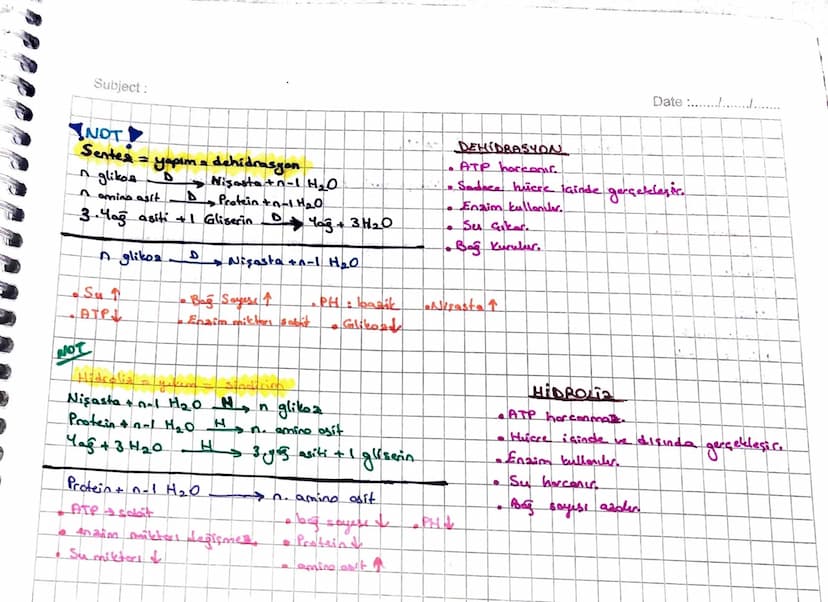 Subject :
Date :....../....../......
NOT!
Sentez = yapım = dehidrasyon
n glikoz D→ Nişasta + n-1 H₂O
n amino asit D→ Protein + n-1 H₂O
3.Yağ asiti + 1 Gliserin D→ Yağ + 3H₂O
n glikoz D→ Nişasta + n-1 H₂O
• Su ↑ • Bağ Sayısı ↑ • PH : bazik • Nişasta ↑
• ATP ↓ • Enzim miktarı sabit • Glikoz ↓
DEHİDRASYON
• ATP harcanır.
• Sadece hücre içinde gerçekleşir.
• Enzim kullanılır.
• Su Çıkar.
• Bağ Kurulur.
NOT
Hidroliz = yıkım = sindirim
Nişasta + n-1 H₂O H→ n glikoz
Protein + n-1 H₂O H→ n. amino asit
Yağ + 3 H₂O H→ 3.yağ asiti + 1 gliserin
Protein + n-1 H₂O → n. amino asit
• ATP → sabit • bağ sayısı ↓ • PH ↓
• enzim miktarı değişmez. • Protein ↓
• Su miktarı ↓ • amino asit ↑
HİDROLİZ
• ATP harcanmaz.
• Hücre içinde ve dışında gerçekleşir.
• Enzim kullanılır.
• Su harcanır.
• Bağ sayısı azalır.